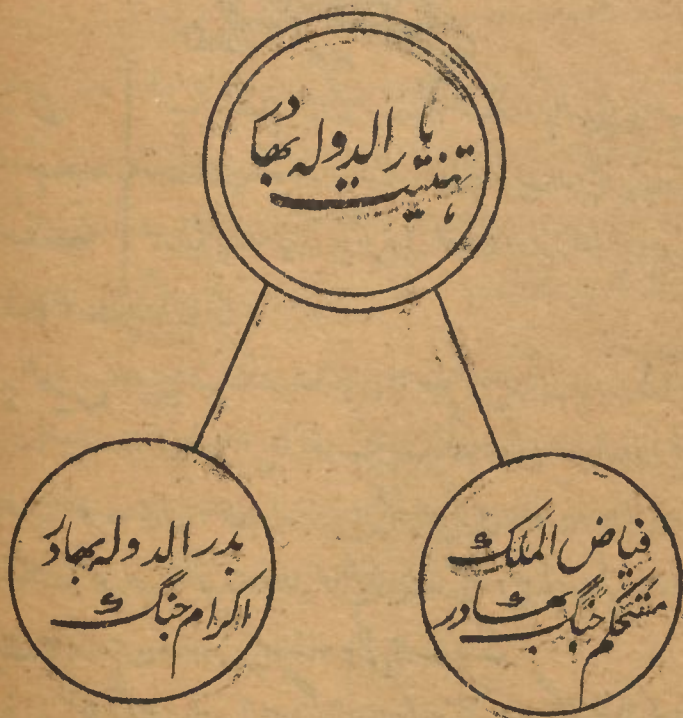 تهنیت یار الدوله بهادر
فیاض الملک
مستحکم جنگ بهادر
بدر الدوله بهادر
اکرام جنگ